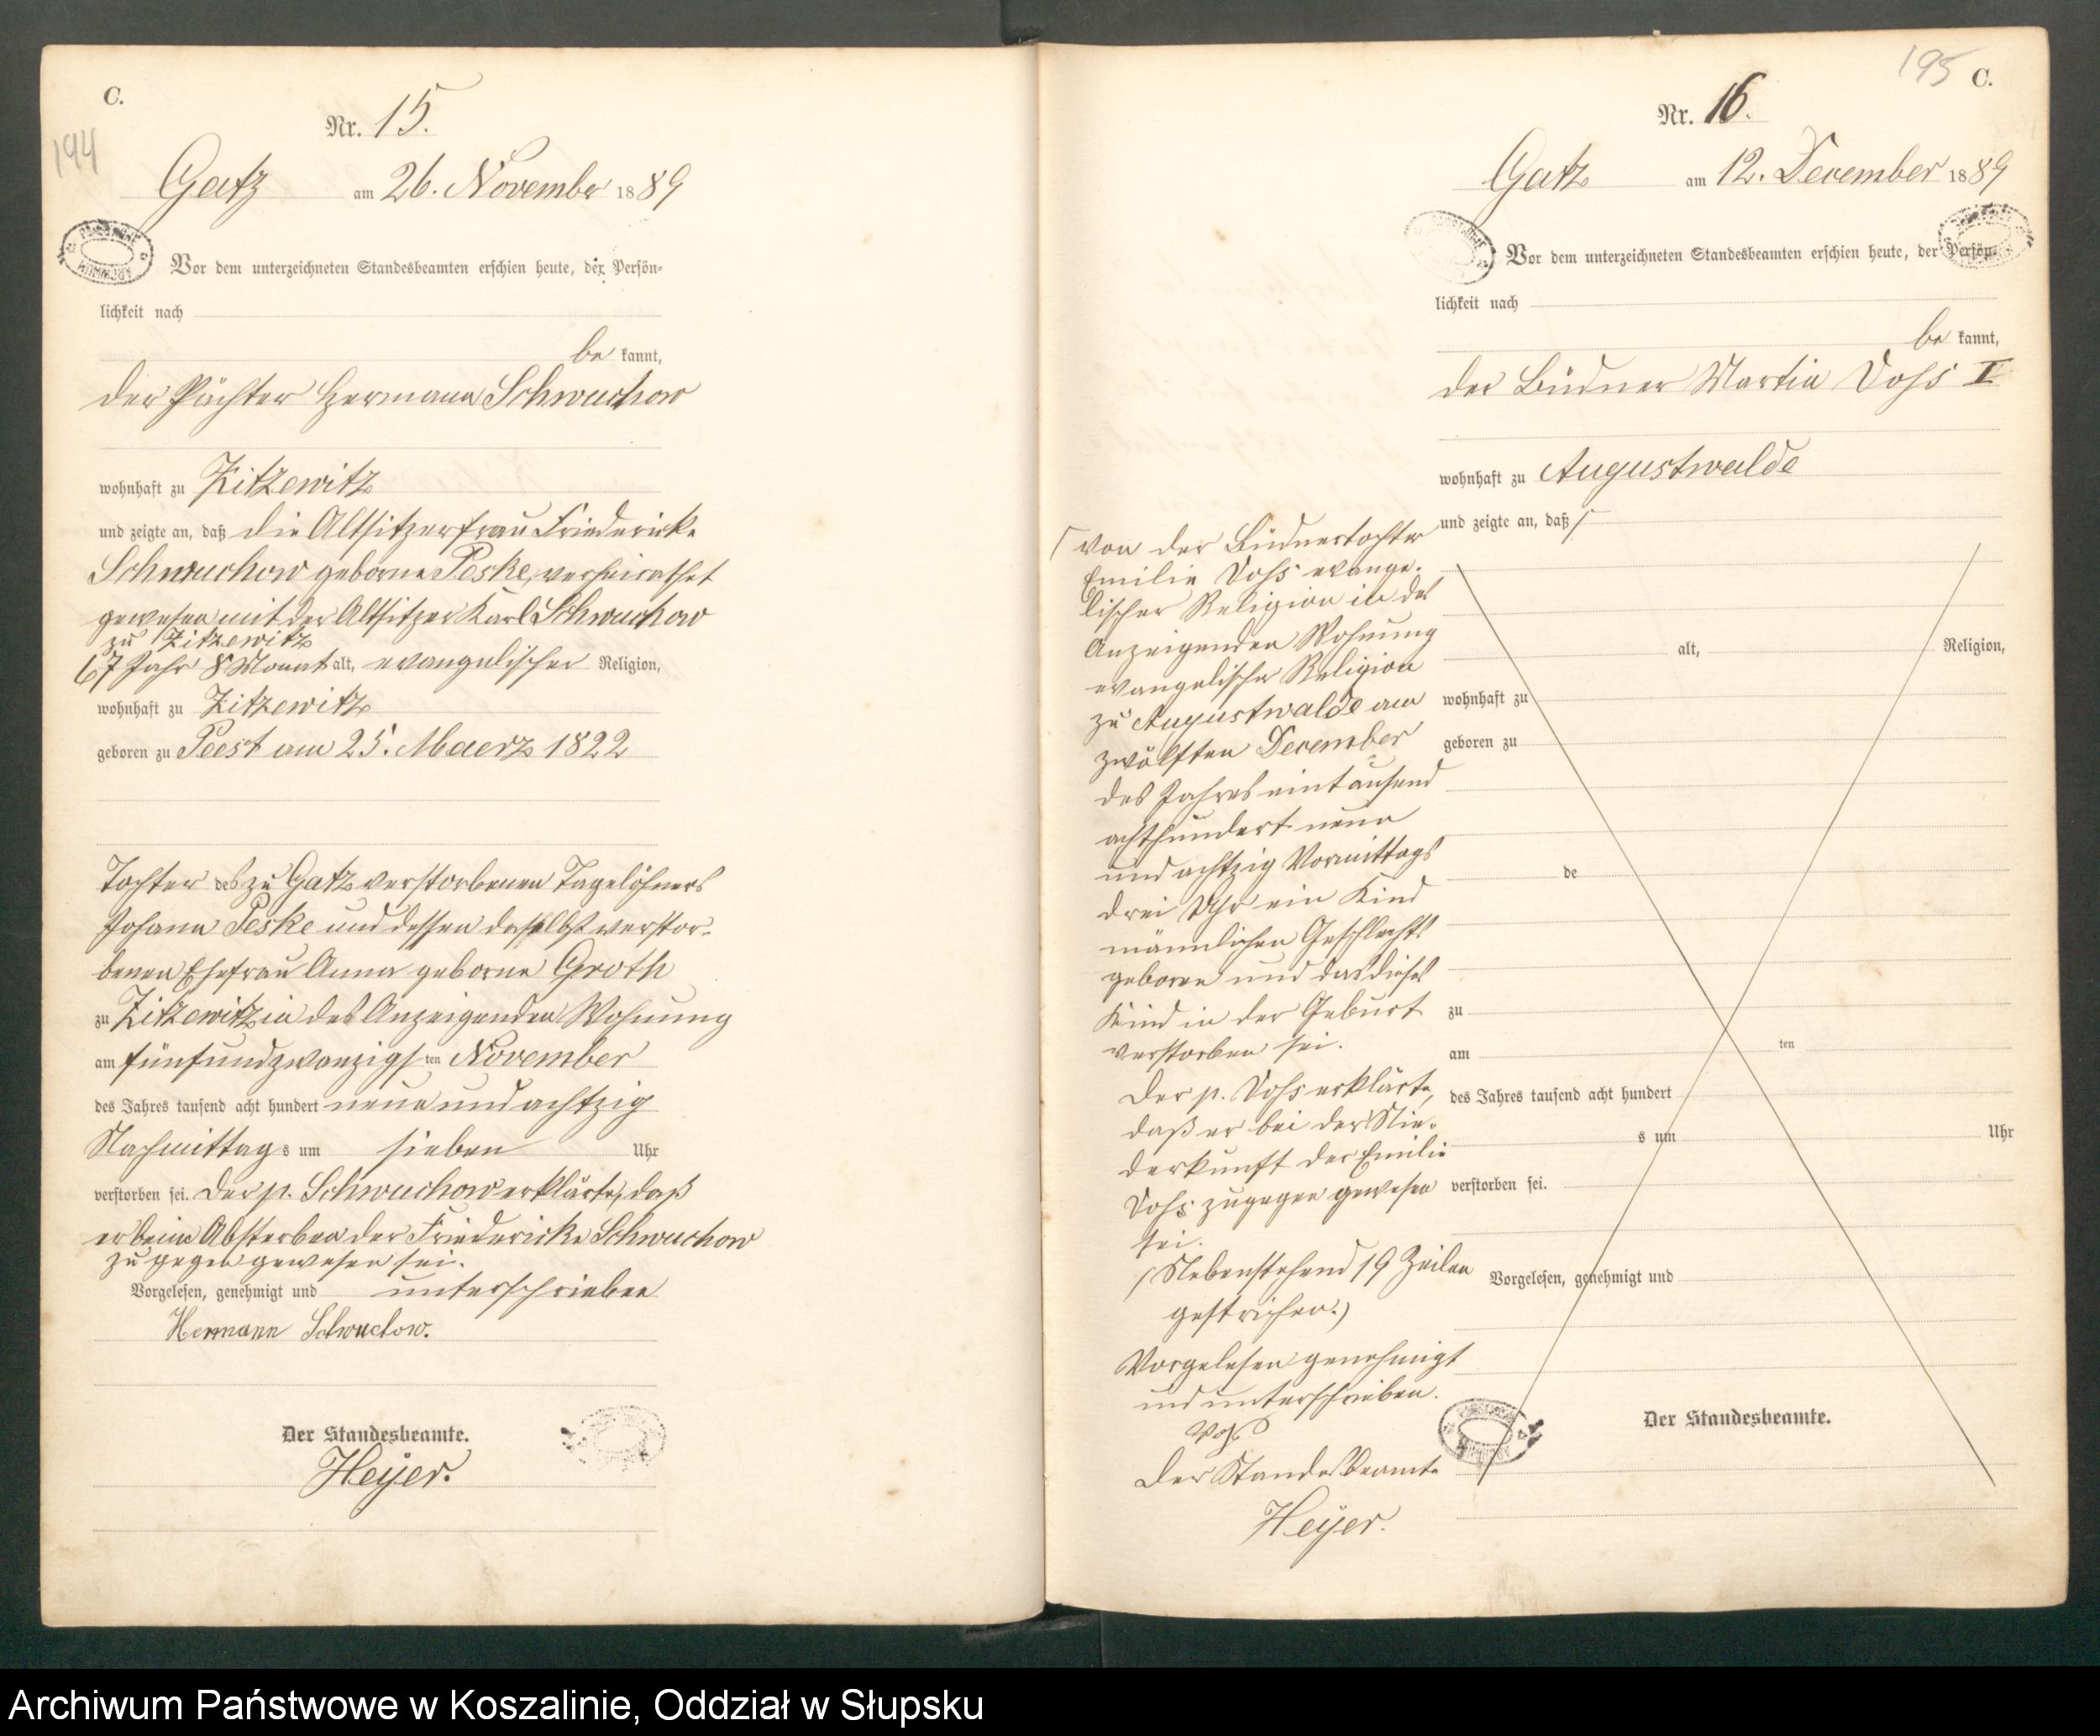 C.
194
Nr. 15.
Gatz am 26. November 1889
Vor dem unterzeichneten Standesbeamten erschien heute, der Persön-
lichkeit nach
be kannt,
der Pächter Hermann Schwuchow
wohnhaft zu Zitzewitz
und zeigte an, daß die Altsitzerfrau Friedericke
Schwuchow geborne Peske, verheirathet
gewesen mit der Altsitzer Karl Schwuchow
zu Zitzewitz
67 Jahr 8 Monat alt, evangelischer Religion,
wohnhaft zu Zitzewitz
geboren zu Peest am 25. Maerz 1822
Tochter des zu Gatz verstorbenen Tagelöhners
Johann Peske und dessen daselbst verstor-
benen Ehefrau Anna geborne Groth
zu Zitzewitz in des Anzeigenden Wohnung
am fünfundzwanzigsten November
des Jahres tausend acht hundert neun und achtzig
Nachmittags um sieben Uhr
verstorben sei. Der p. Schwuchow erklärte, daß
er beim Absterben der Friedericke Schwuchow
zugegen gewesen sei.
Vorgelesen, genehmigt und unterschrieben
Hermann Schwuchow.
Der Standesbeamte.
Heyer.
195
C.
Nr. 16.
Gatz am 12. December 1889
Vor dem unterzeichneten Standesbeamten erschien heute, der Persön-
lichkeit nach
be kannt,
der Büdner Martin Voss I
wohnhaft zu Augustwalde
und zeigte an, daß
von der Büdnertochter
Emilie Voss evange-
lischer Religion in des
Anzeigenden Wohnung
evangelischer Religion
zu Augustwalde am
zwölften December
des Jahres eintausend
achthundert neun
und achtzig Vormittags
drei Uhr ein Kind
männlichen Geschlechts
geboren und das dieses
Kind in der Geburt
verstorben sei.
Der p. Voss erklärte,
daß er bei der Nie-
derkunft der Emilie
Voss zugegen gewesen
sei.
(Nebenstehend 19 Zeilen
gestrichen.)
Vorgelesen genehmigt
und unterschrieben.
Voss
Der Standesbeamte
Heyer.
alt, Religion,
wohnhaft zu
geboren zu
de
zu
am ten
des Jahres tausend acht hundert
s um Uhr
verstorben sei.
Vorgelesen, genehmigt und
Der Standesbeamte.
Archiwum Państwowe w Koszalinie, Oddział w Słupsku